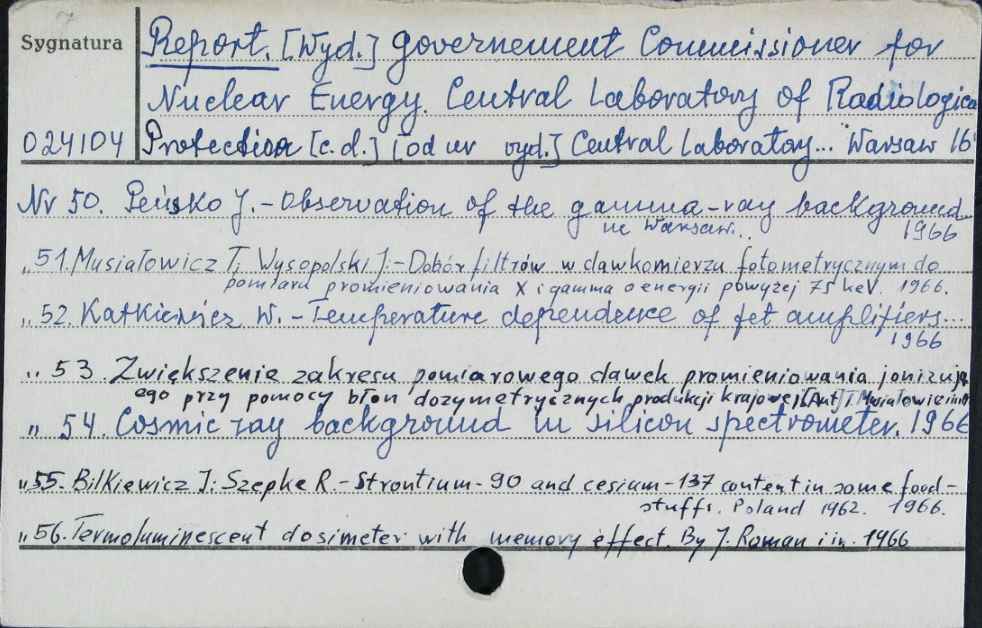 7
Sygnatura Report. [Wyd.] Governement Commissioner for
Nuclear Energy. Central Laboratory of Radiologica
024104 Protection [c.d.] [od nr wyd.] Central Laboratory... Warsaw 16
Nr 50. Peńsko J. - Observation of the gamma-ray background
in Warsaw.. 1966
„ 51. Musiałowicz T, Wysopolski J. - Dobór filtrów w dawkomierzu fotometrycznym do
pomiaru promieniowania X i gamma o energii powyżej 75 keV. 1966.
„ 52. Katkiewicz W. - Temperature dependence of fet amplifiers...
1966
„ 53. Zwiększenie zakresu pomiarowego dawek promieniowania jonizują
ego przy pomocy błon dozymetrycznych produkcji krajowej [Aut.] T. Musiałowicz
„ 54. Cosmic ray background in silicon spectrometer. 1966
„ 55. Bilkiewicz J; Szepke R. - Strontium-90 and cesium-137 content in some food-
stuffs. Poland 1962. 1966.
„ 56. Termoluminescent dosimeter with memory effect. By J. Roman i in. 1966